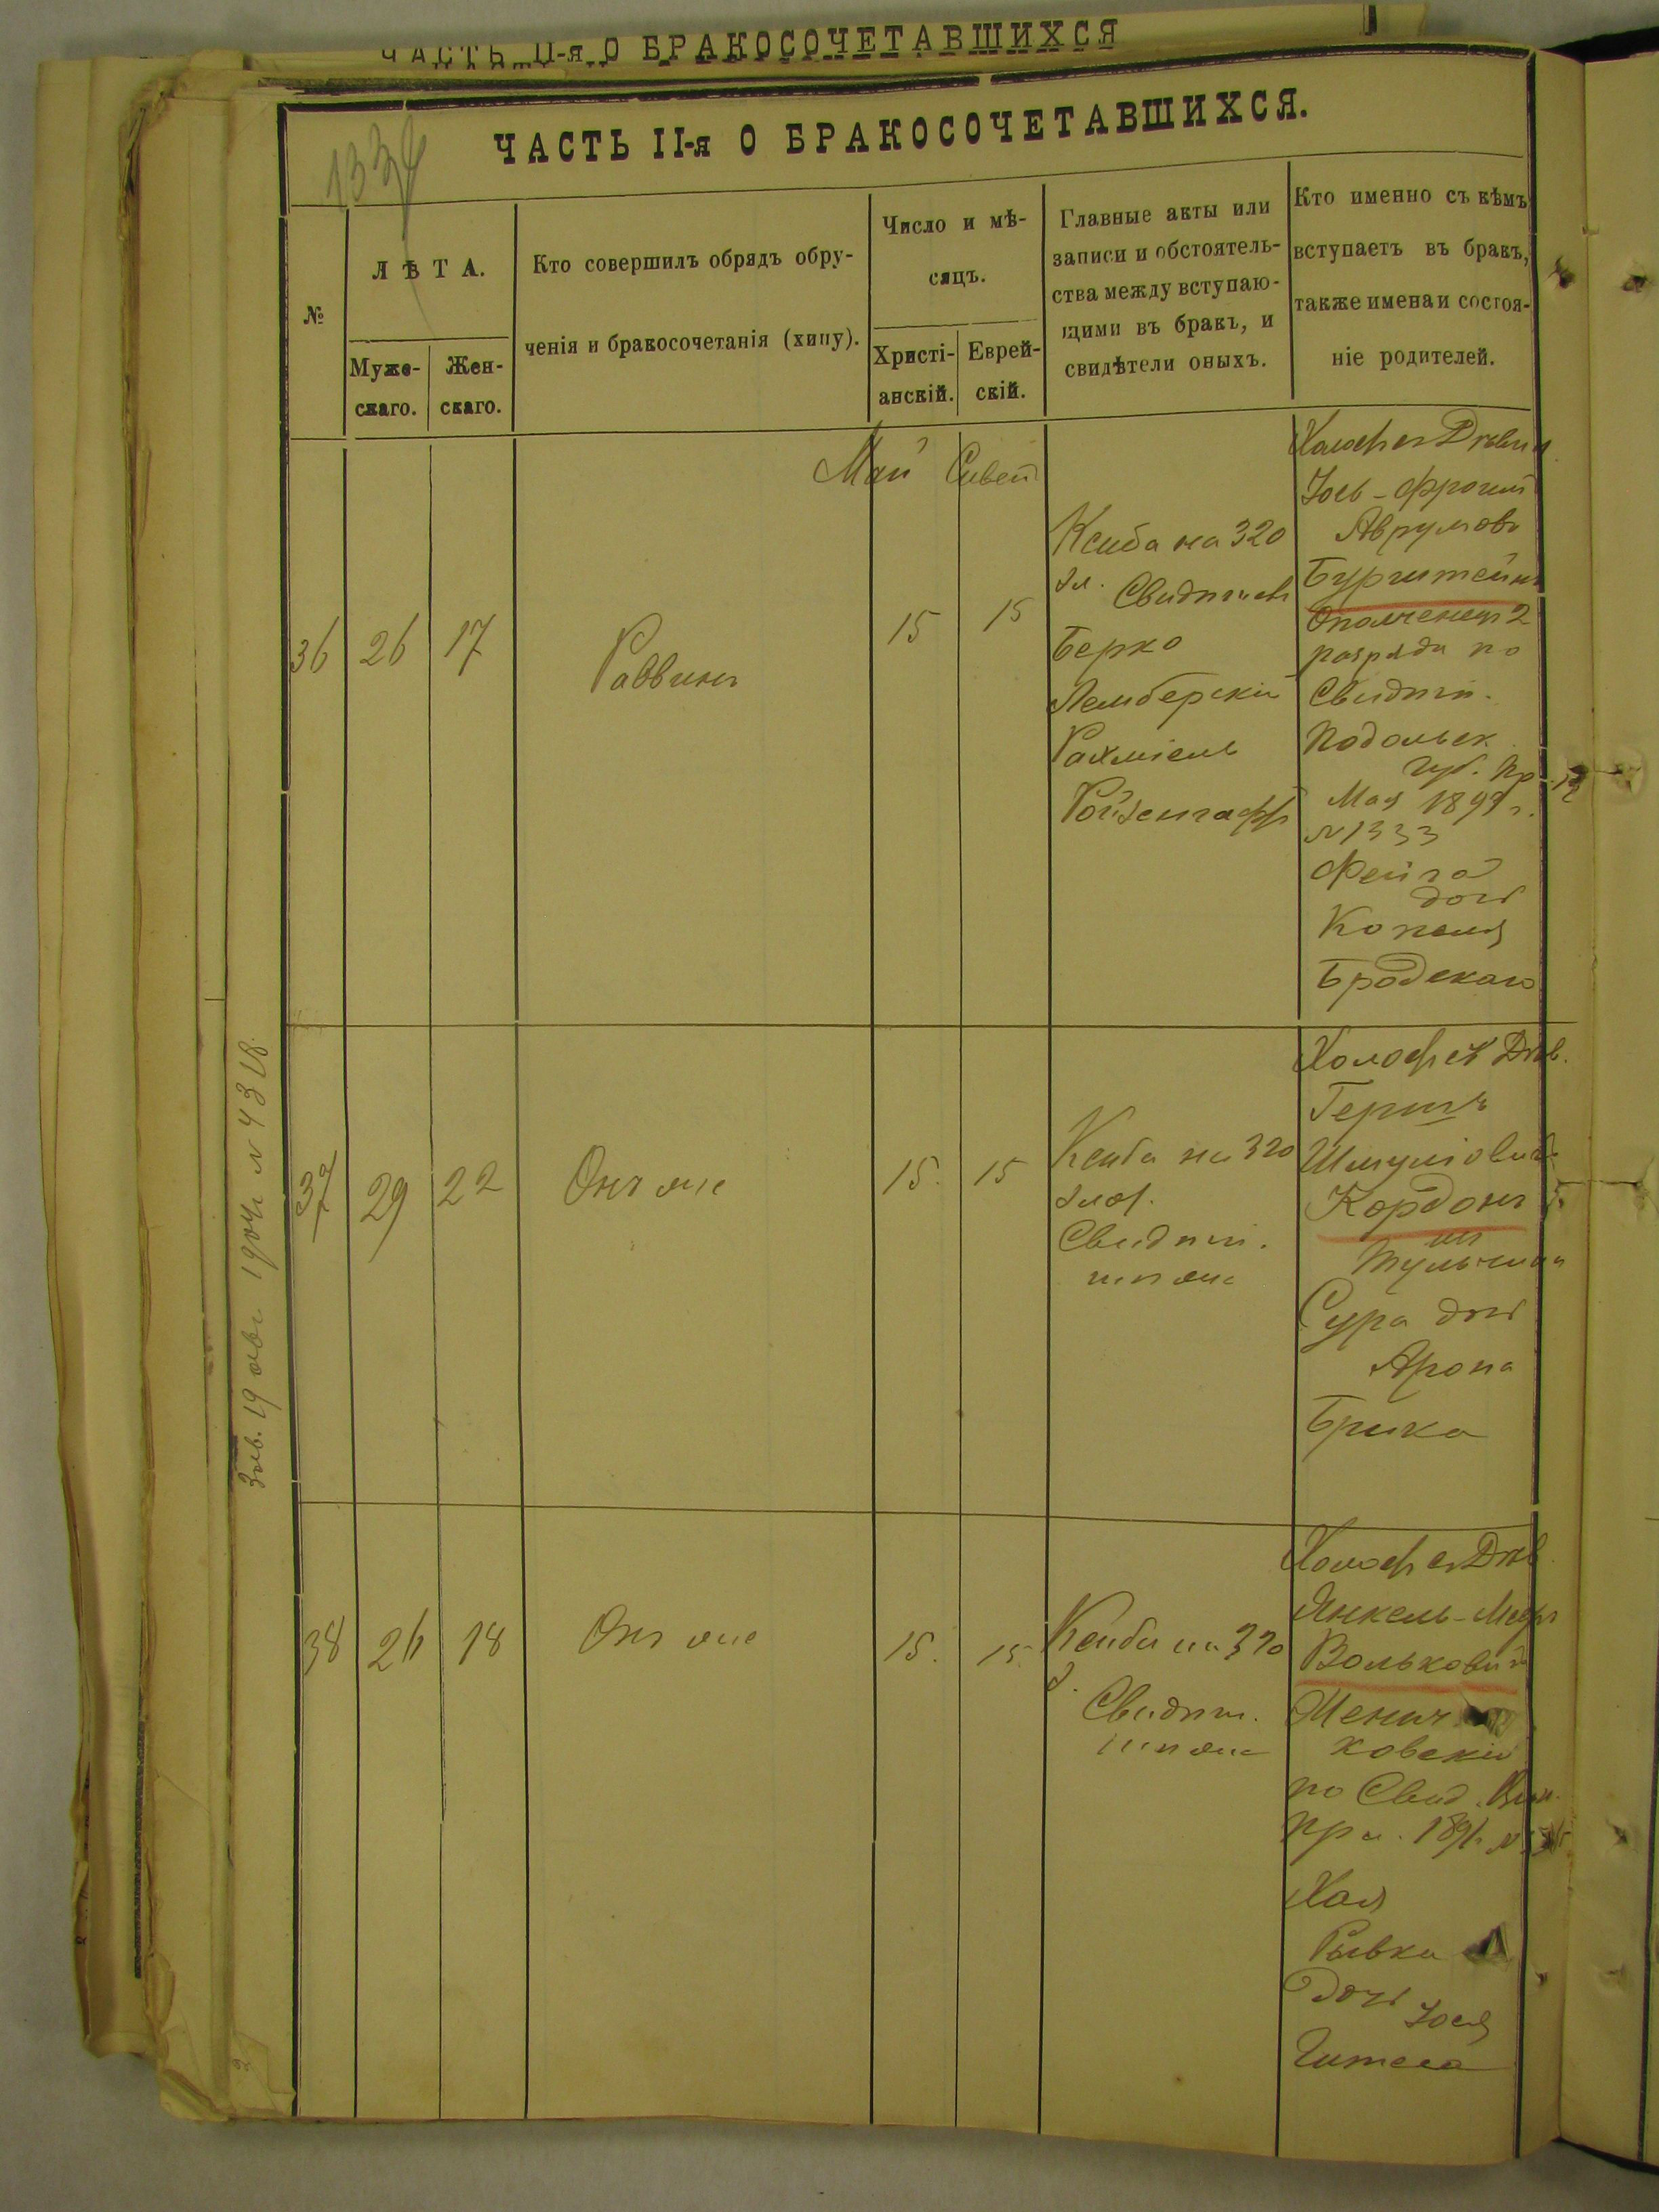 ЧАСТЬ II-я О БРАКОСОЧЕТАВШИХСЯ
ЧАСТЬ II-я О БРАКОСОЧЕТАВШИХСЯ.
133
№
ЛѢТА.
Муже-
скаго.
Жен-
скаго.
Кто совершилъ обрядъ обру-
ченія и бракосочетанія (хипу).
Число и мѣ-
сяцъ.
Христі-
анскій.
Еврей-
скій.
Главные акты или
записи и обстоятель-
ства между вступаю-
щими въ бракъ, и
свидѣтели оныхъ.
Кто именно съ кѣмъ
вступаетъ въ бракъ,
также имена и состоя-
ніе родителей.
Май Сивен
36
26
17
Раввинъ
15
15
Ксиба на 320
зл. Свидѣтели
Берко
Лемберскій
Рахміель
Ройзенгафъ
Холостъ съ Дѣвицей
Іось-Фроим
Аврумовъ
Бурштейнъ
Ополченецъ 2
разряда по
Свидѣт.
Подольск.
губ. Пр. 12
Мая 1897 г.
№ 1333
Фейга
дочь
Копеля
Бродскаго
37
29
22
Онъ же
15.
15
Ксиба на 320
злот.
Свидѣт.
тѣ же
Холостъ съ Дѣв.
Гершъ
Шмулёвичъ
Кордонъ
из
Тульчина
Сура дочь
Арона
Брика
38
26
18
Онъ же
15.
15.
Ксиба на 320
з.
Свидѣт.
тѣ же
Холостъ съ Дѣв.
Янкель-Меер
Вольковичъ
ковскій
по Свид.
Пр. 1891
Хая
Рывка
Дочь Іося
Гителя